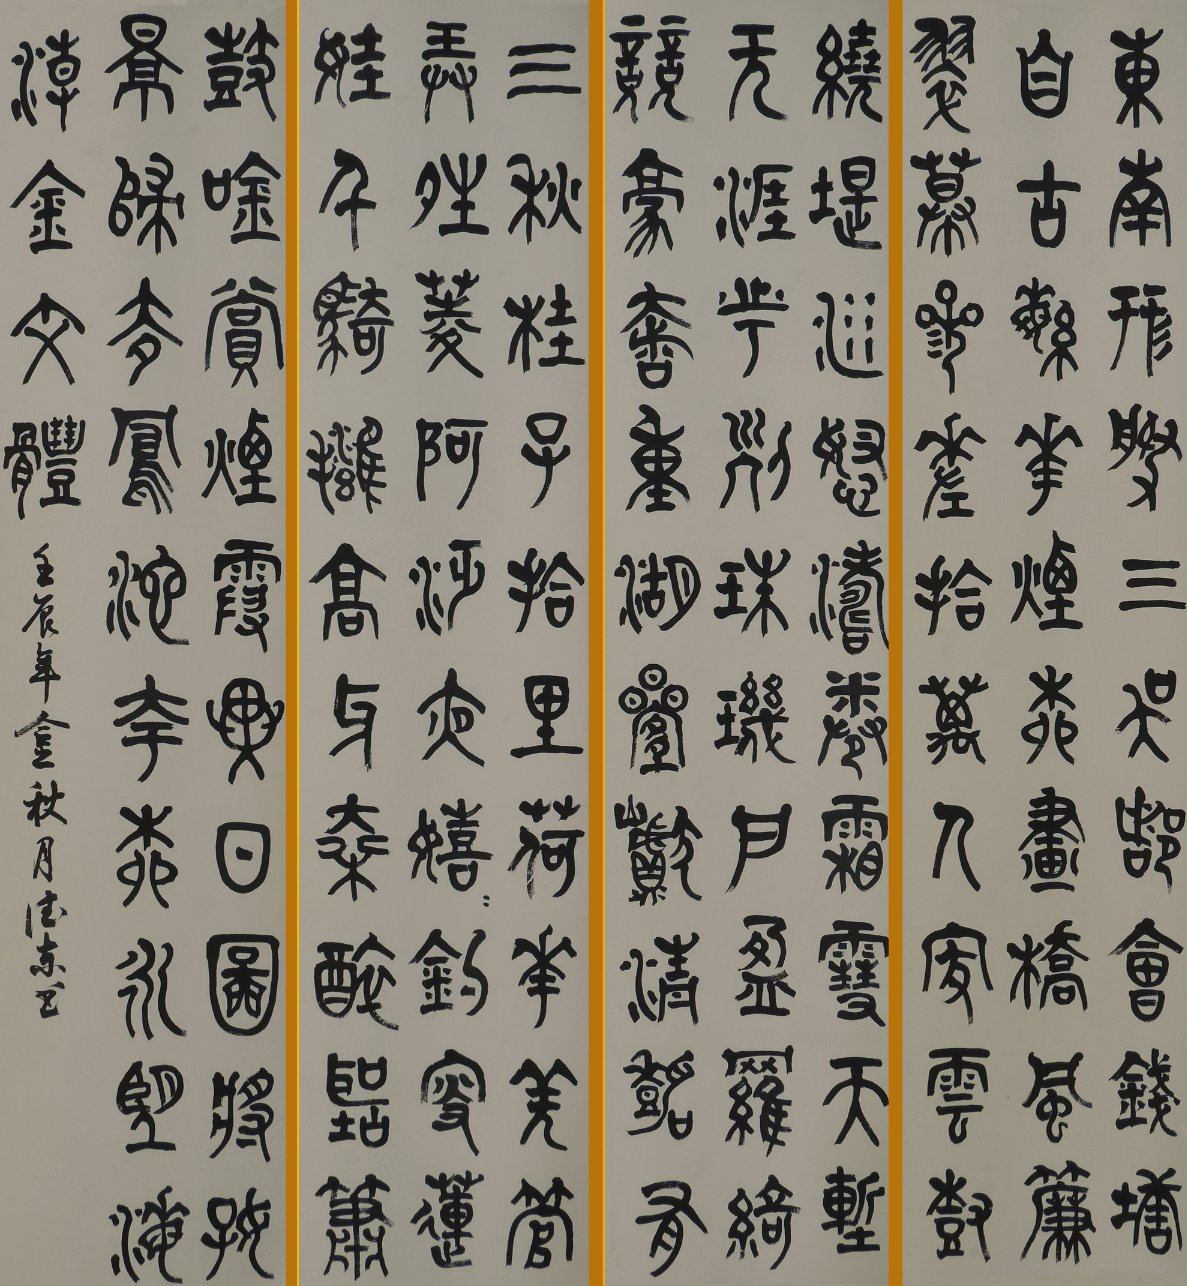 東南形勝三吳都會錢塘
自古繁華煙柳畫橋風簾
翠幕參差拾萬人家雲樹
繞堤沙怒濤卷霜雪天塹
无涯市列珠璣戶盈羅綺
競豪奢重湖疊巘清嘉有
三秋桂子拾里荷華羌管
弄晴菱歌泛夜嬉:釣叟蓮
娃千騎擁高牙乘醉聽簫
鼓吟賞煙霞異日圖將好
景歸去鳳池夸柳永望海
潮金文體
壬辰年金秋月德京書